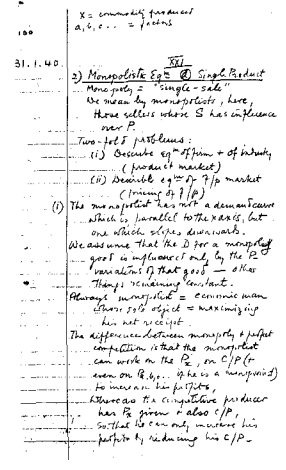 x = commodity produced
a, b, c, ... = factors
100
XXI
31.1.40.
2) Monopolistic Eqm (a) Single Product
Monopoly = "single-sale"
We mean by monopolists, here,
those sellers whose S has influence
over P.
Two-fold problems:
(i) Describe eqm of firm + of industry
(product market)
(ii) Describe eqm of f/p market
(pricing of f/p)
(i) The monopolist has not a demand curve
which is parallel to the x axis, but
one which slopes downwards.
We assume that the D for a monopolised
good is influenced only by the P
variations of that good — other
things remaining constant.
Always monopolist = economic man
whose sole object = maximizing
his net receipt.
The difference between monopoly & perfect
competition is that the monopolist
can work on the Px, on C/P (+
even on Pa,b,.. if he is a monopsonist)
to increase his profits,
whereas the competitive producer
has Px given + also C/P,
so that he can only increase his
profits by reducing his C/P.